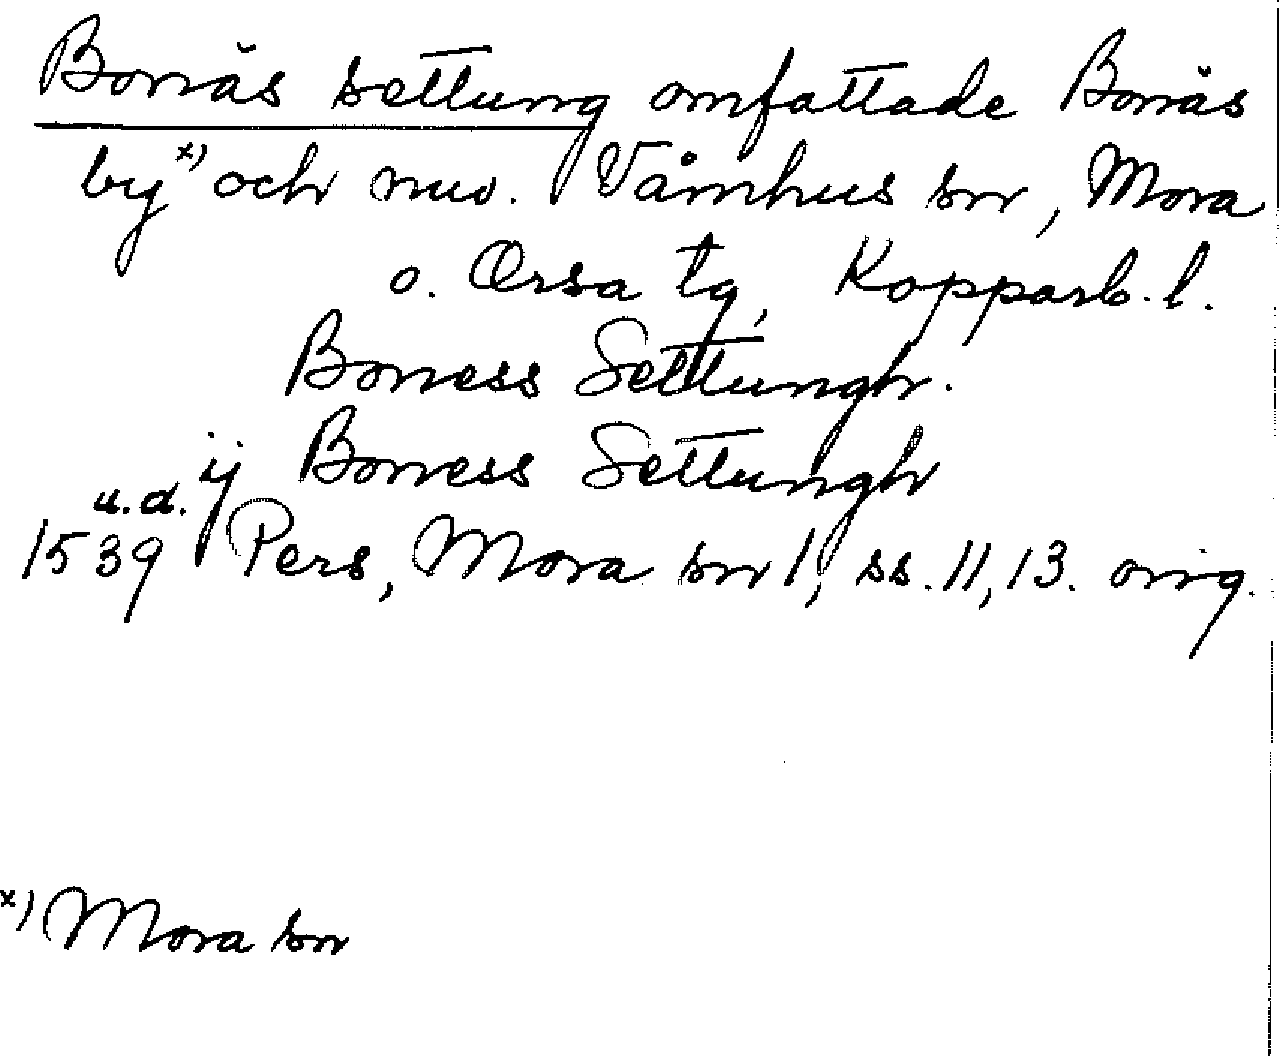 Bonäs settung omfattade Bonäs
by x) och nuv. Våmhus sn, Mora
o. Orsa tg, Kopparb. l.
Boness Settungh.
ij Boness Settungh
u.d.
1539 Pers, Mora sn 1, ss. 11, 13. orig.
x) Mora sn